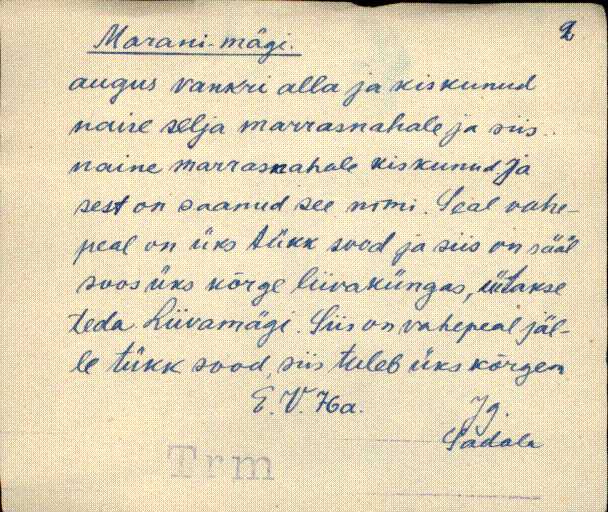 2
Marani-mägi.
augus vankri alla ja kiskunud
naise selja marrasnahale ja siis
naine marrasnahale kiskunud. Ja
sest on saanud see nimi. Seal vahe-
peal on üks tükk sood ja siis on sääl
soos üks kõrge liivaküngas, üitakse
teda Liivamägi. Siis on vahepeal jäl-
le tükk sood, siis tuleb üks kõrgem
E. V. Ha. Jg.
Sadala
Trm